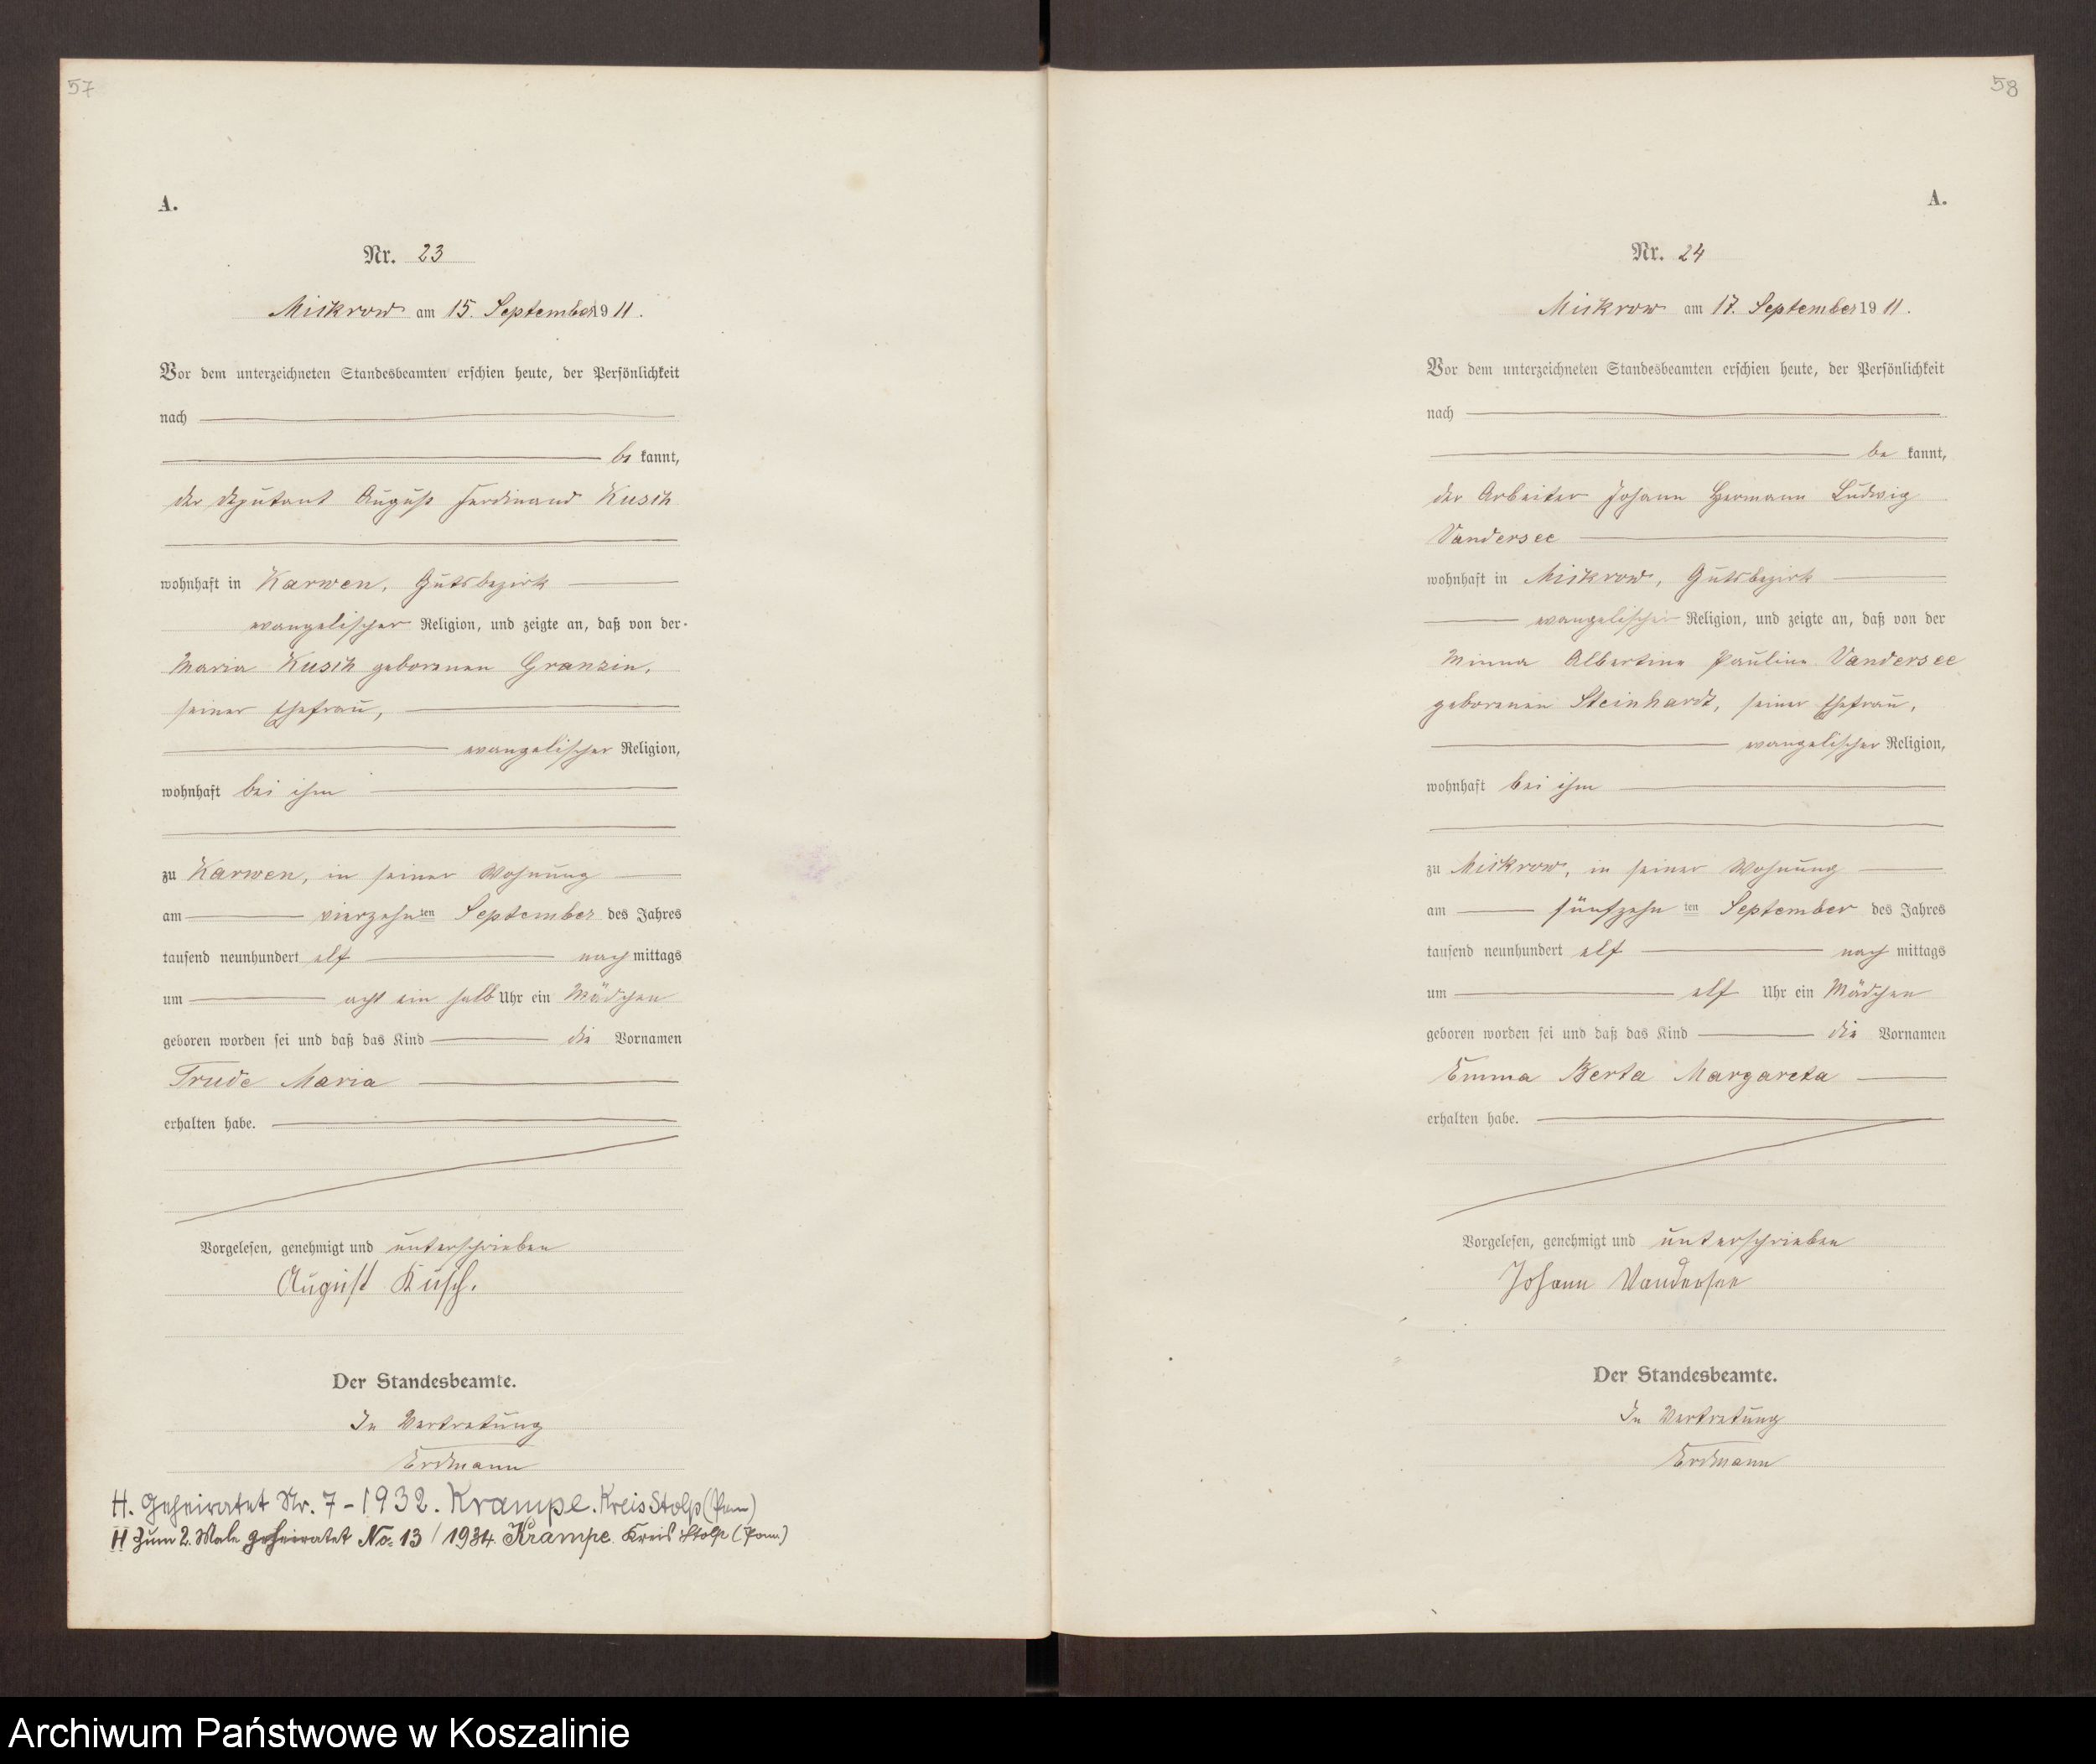 57
A.
Nr. 23
Mickrow am 15. September 1911.
Vor dem unterzeichneten Standesbeamten erschien heute, der Persönlichkeit
nach
be kannt,
der Deputant August Ferdinand Kusch
wohnhaft in Karwen, Gutsbezirk
evangelischer Religion, und zeigte an, daß von der
Maria Kusch geborenen Granzin,
seiner Ehefrau,
evangelischer Religion,
wohnhaft bei ihm
zu Karwen, in seiner Wohnung
am vierzehnten September des Jahres
tausend neunhundert elf nachmittags
um acht ein halb Uhr ein Mädchen
geboren worden sei und daß das Kind die Vornamen
Trude Maria
erhalten habe.
Vorgelesen, genehmigt und unterschrieben
August Kusch.
Der Standesbeamte.
In Vertretung
Erdmann
H. Geheiratet Nr. 7-1932. Krampe. Kreis Stolp (Pom)
H Zum 2. Male geheiratet No. 13/1934. Krampe Kreis Stolp (Pom.)
58
A.
Nr. 24
Mickrow am 17. September 1911.
Vor dem unterzeichneten Standesbeamten erschien heute, der Persönlichkeit
nach
be kannt,
der Arbeiter Johann Hermann Ludwig
Vandersee
wohnhaft in Mickrow, Gutsbezirk
evangelischer Religion, und zeigte an, daß von der
Minna Albertine Pauline Vandersee
geborenen Steinhardt, seiner Ehefrau,
evangelischer Religion,
wohnhaft bei ihm
zu Mickrow, in seiner Wohnung
am fünfzehn ten September des Jahres
tausend neunhundert elf nach mittags
um elf Uhr ein Mädchen
geboren worden sei und daß das Kind die Vornamen
Emma Berta Margareta
erhalten habe.
Vorgelesen, genehmigt und unterschrieben
Johann Vandersee
Der Standesbeamte.
In Vertretung
Erdmann
Archiwum Państwowe w Koszalinie